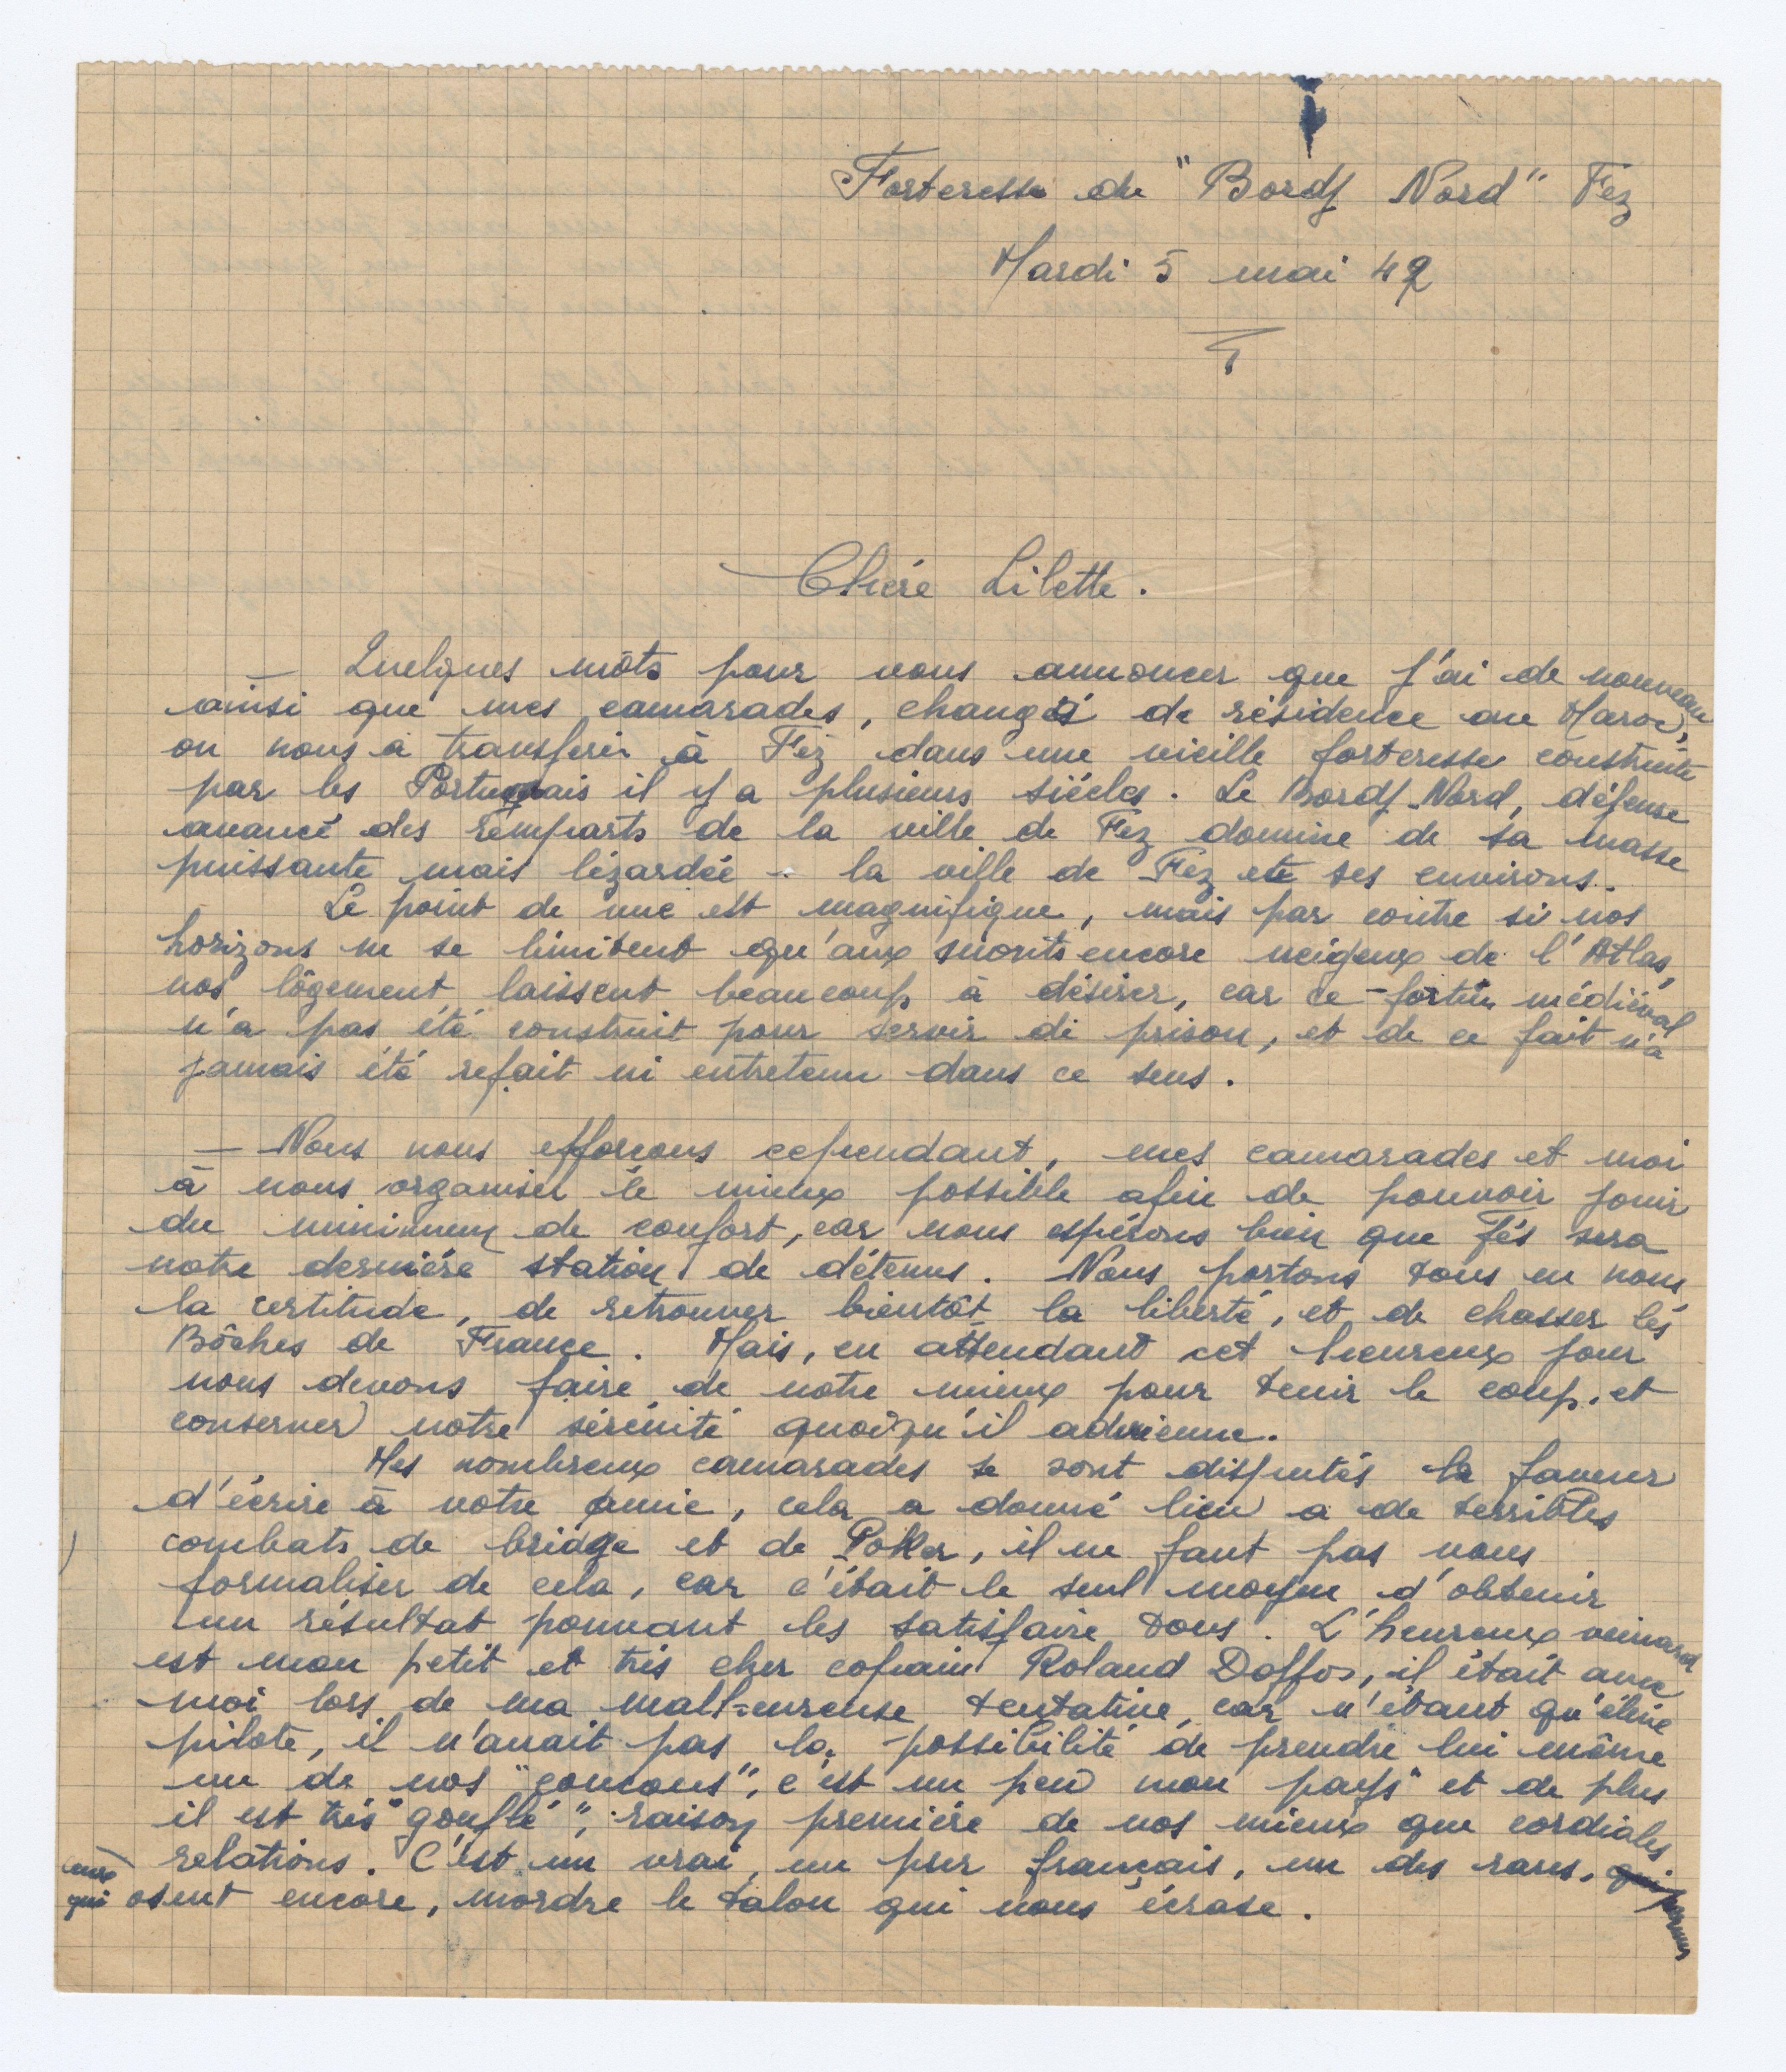 Forteresse du "Bordj Nord" Fez
Mardi 5 mai 42
Chére Lilette.
— Quelques môts pour vous annoncer que j'ai de nouveau,
ainsi que mes camarades, changés de résidence au Maroc,
on nous a transferés à Fez dans une vieille forteresse construite
par les Portugais il y a plusieurs siécles. Le Bordj Nord, défense
avancé des remparts de la ville de Fez domine de sa masse
puissante mais lézardée - la ville de Fez et ses environs.
Le point de vue est magnifique, mais par contre si nos
horizons ne se limitent qu'aux monts encore neigeux de l'Atlas,
nos lôgement laissent beaucoup à désirer, car ce fortin médiéval
n'a pas été construit pour servir de prison, et de ce fait n'a
jamais été refait ni entretenu dans ce sens.
— Nous nous efforcons cependant, mes camarades et moi
à nous organiser le mieux possible afin de pouvoir jouir
du minimum de confort, car nous espérons bien que Fés sera
notre derniére station de détenus. Nous portons tous en nous
la certitude, de retrouver bientôt la liberté, et de chasser lés
Bôches de France. Mais, en attendant cet heureux jour
nous devons faire de notre mieux pour tenir le coup, et
conserver notre sérénité quoiqu'il advienne.
Mes nombreux camarades se sont disputés la faveur
d'écrire à votre amie, cela a donné lieu a de terribles
combats de bridge et de Poker, il ne faut pas vous
formaliser de cela, car c'était le seul moyen d'obtenir
un résultat pouvant les satisfaire tous. L'heureux veinard
est mon petit et trés cher copain Roland Doffos, il était avec
moi lors de ma mal=eureuse tentative, car n'étant qu'élève
pilote, il n'avait pas la possibilité de prendre lui même
un de nos "coucous", c'est un peu mon pays" et de plus
il est trés "gouflé", raison premiére de nos mieux que cordiales
relations. C'est un vrai, un pur français, un des rares,
qui osent encore, mordre le talon qui nous écrase.